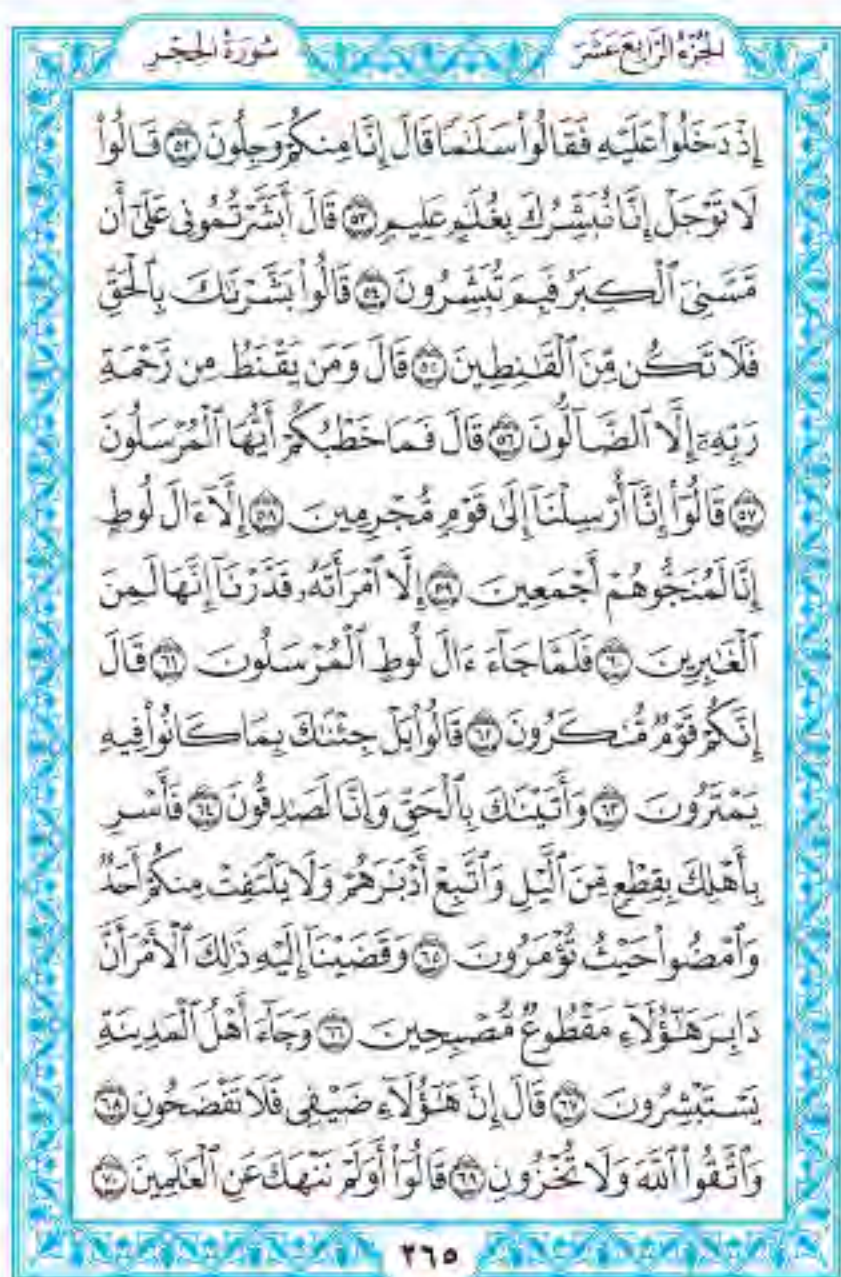 الجزء الرابع عشر
سورة الحجر
إِذْ دَخَلُوا۟ عَلَيْهِ فَقَالُوا۟ سَلَٰمًا قَالَ إِنَّا مِنكُمْ وَجِلُونَ ٥٢ قَالُوا۟
لَا تَوْجَلْ إِنَّا نُبَشِّرُكَ بِغُلَٰمٍ عَلِيمٍ ٥٣ قَالَ أَبَشَّرْتُمُونِى عَلَىٰٓ أَن
مَّسَّنِىَ ٱلْكِبَرُ فَبِمَ تُبَشِّرُونَ ٥٤ قَالُوا۟ بَشَّرْنَٰكَ بِٱلْحَقِّ
فَلَا تَكُن مِّنَ ٱلْقَٰنِطِينَ ٥٥ قَالَ وَمَن يَقْنَطُ مِن رَّحْمَةِ
رَبِّهِۦٓ إِلَّا ٱلضَّآلُّونَ ٥٦ قَالَ فَمَا خَطْبُكُمْ أَيُّهَا ٱلْمُرْسَلُونَ
٥٧ قَالُوٓا۟ إِنَّآ أُرْسِلْنَآ إِلَىٰ قَوْمٍ مُّجْرِمِينَ ٥٨ إِلَّآ ءَالَ لُوطٍ
إِنَّا لَمُنَجُّوهُمْ أَجْمَعِينَ ٥٩ إِلَّا ٱمْرَأَتَهُۥ قَدَّرْنَآ إِنَّهَا لَمِنَ
ٱلْغَٰبِرِينَ ٦٠ فَلَمَّا جَآءَ ءَالَ لُوطٍ ٱلْمُرْسَلُونَ ٦١ قَالَ
إِنَّكُمْ قَوْمٌ مُّنكَرُونَ ٦٢ قَالُوا۟ بَلْ جِئْنَٰكَ بِمَا كَانُوا۟ فِيهِ
يَمْتَرُونَ ٦٣ وَأَتَيْنَٰكَ بِٱلْحَقِّ وَإِنَّا لَصَٰدِقُونَ ٦٤ فَأَسْرِ
بِأَهْلِكَ بِقِطْعٍ مِّنَ ٱلَّيْلِ وَٱتَّبِعْ أَدْبَٰرَهُمْ وَلَا يَلْتَفِتْ مِنكُمْ أَحَدٌ
وَٱمْضُوا۟ حَيْثُ تُؤْمَرُونَ ٦٥ وَقَضَيْنَآ إِلَيْهِ ذَٰلِكَ ٱلْأَمْرَ أَنَّ
دَابِرَ هَٰٓؤُلَآءِ مَقْطُوعٌ مُّصْبِحِينَ ٦٦ وَجَآءَ أَهْلُ ٱلْمَدِينَةِ
يَسْتَبْشِرُونَ ٦٧ قَالَ إِنَّ هَٰٓؤُلَآءِ ضَيْفِى فَلَا تَفْضَحُونِ ٦٨
وَٱتَّقُوا۟ ٱللَّهَ وَلَا تُخْزُونِ ٦٩ قَالُوٓا۟ أَوَلَمْ نَنْهَكَ عَنِ ٱلْعَٰلَمِينَ ٧٠
٢٦٥